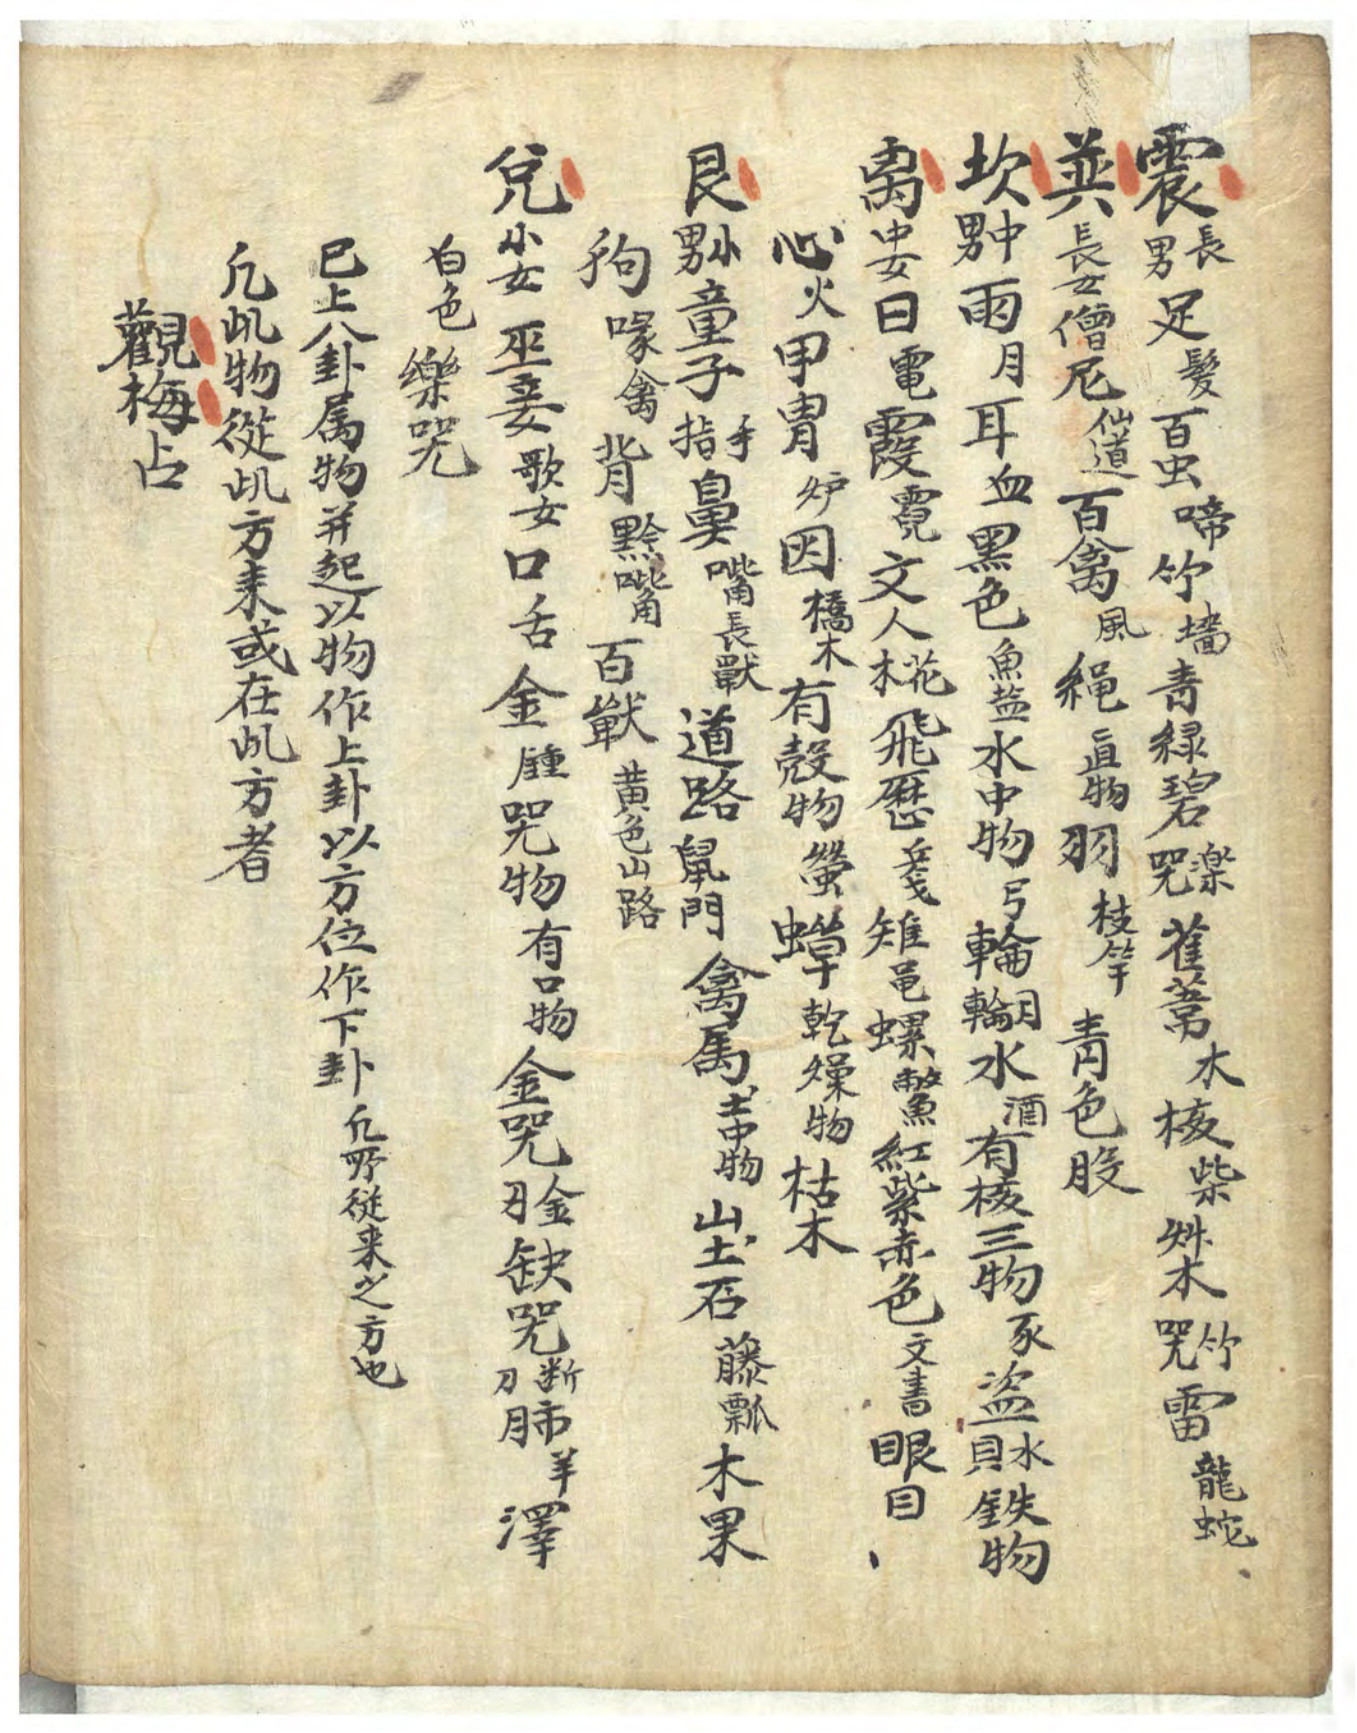 震長男足髮百虫啼竹墻青綠碧樂咒萑葦木核柴艸木竹咒雷龍蛇
巽長女僧尼仙道百禽風繩直物羽枝竿青色股
坎中男雨月耳血黑色魚盐水中物弓輪水酒有核三物豕盗水貝鉄物
离中女日電霞霓文人花木飛歷戔雉黽螺鱉紅紫赤色文書眼目
心火甲冑炉因橋木有殼物螢乾燥物枯木
艮小男童子手指鼻嘴長獸道路鼠門禽属土中物山土石藤瓢木果
狗喙禽背黔嘴百獸黄色山路
兌小女巫妾歌女口舌金咒物有口物金咒金刀缺咒断刀肺羊澤
白色樂咒
已上八卦属物并起以物作上卦以方位作下卦凡所從来之方也
凡此物從此方来或在此方者
觀梅占